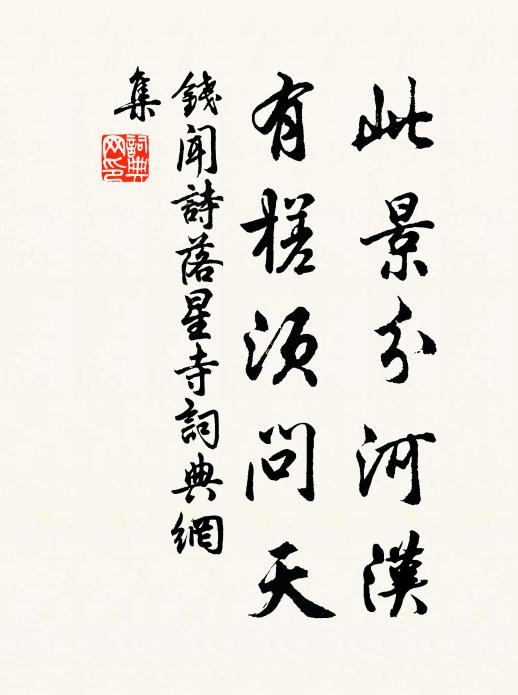 此景分河漢
有槎須問天
錢聞詩落星寺詞典網
集
詞典網印